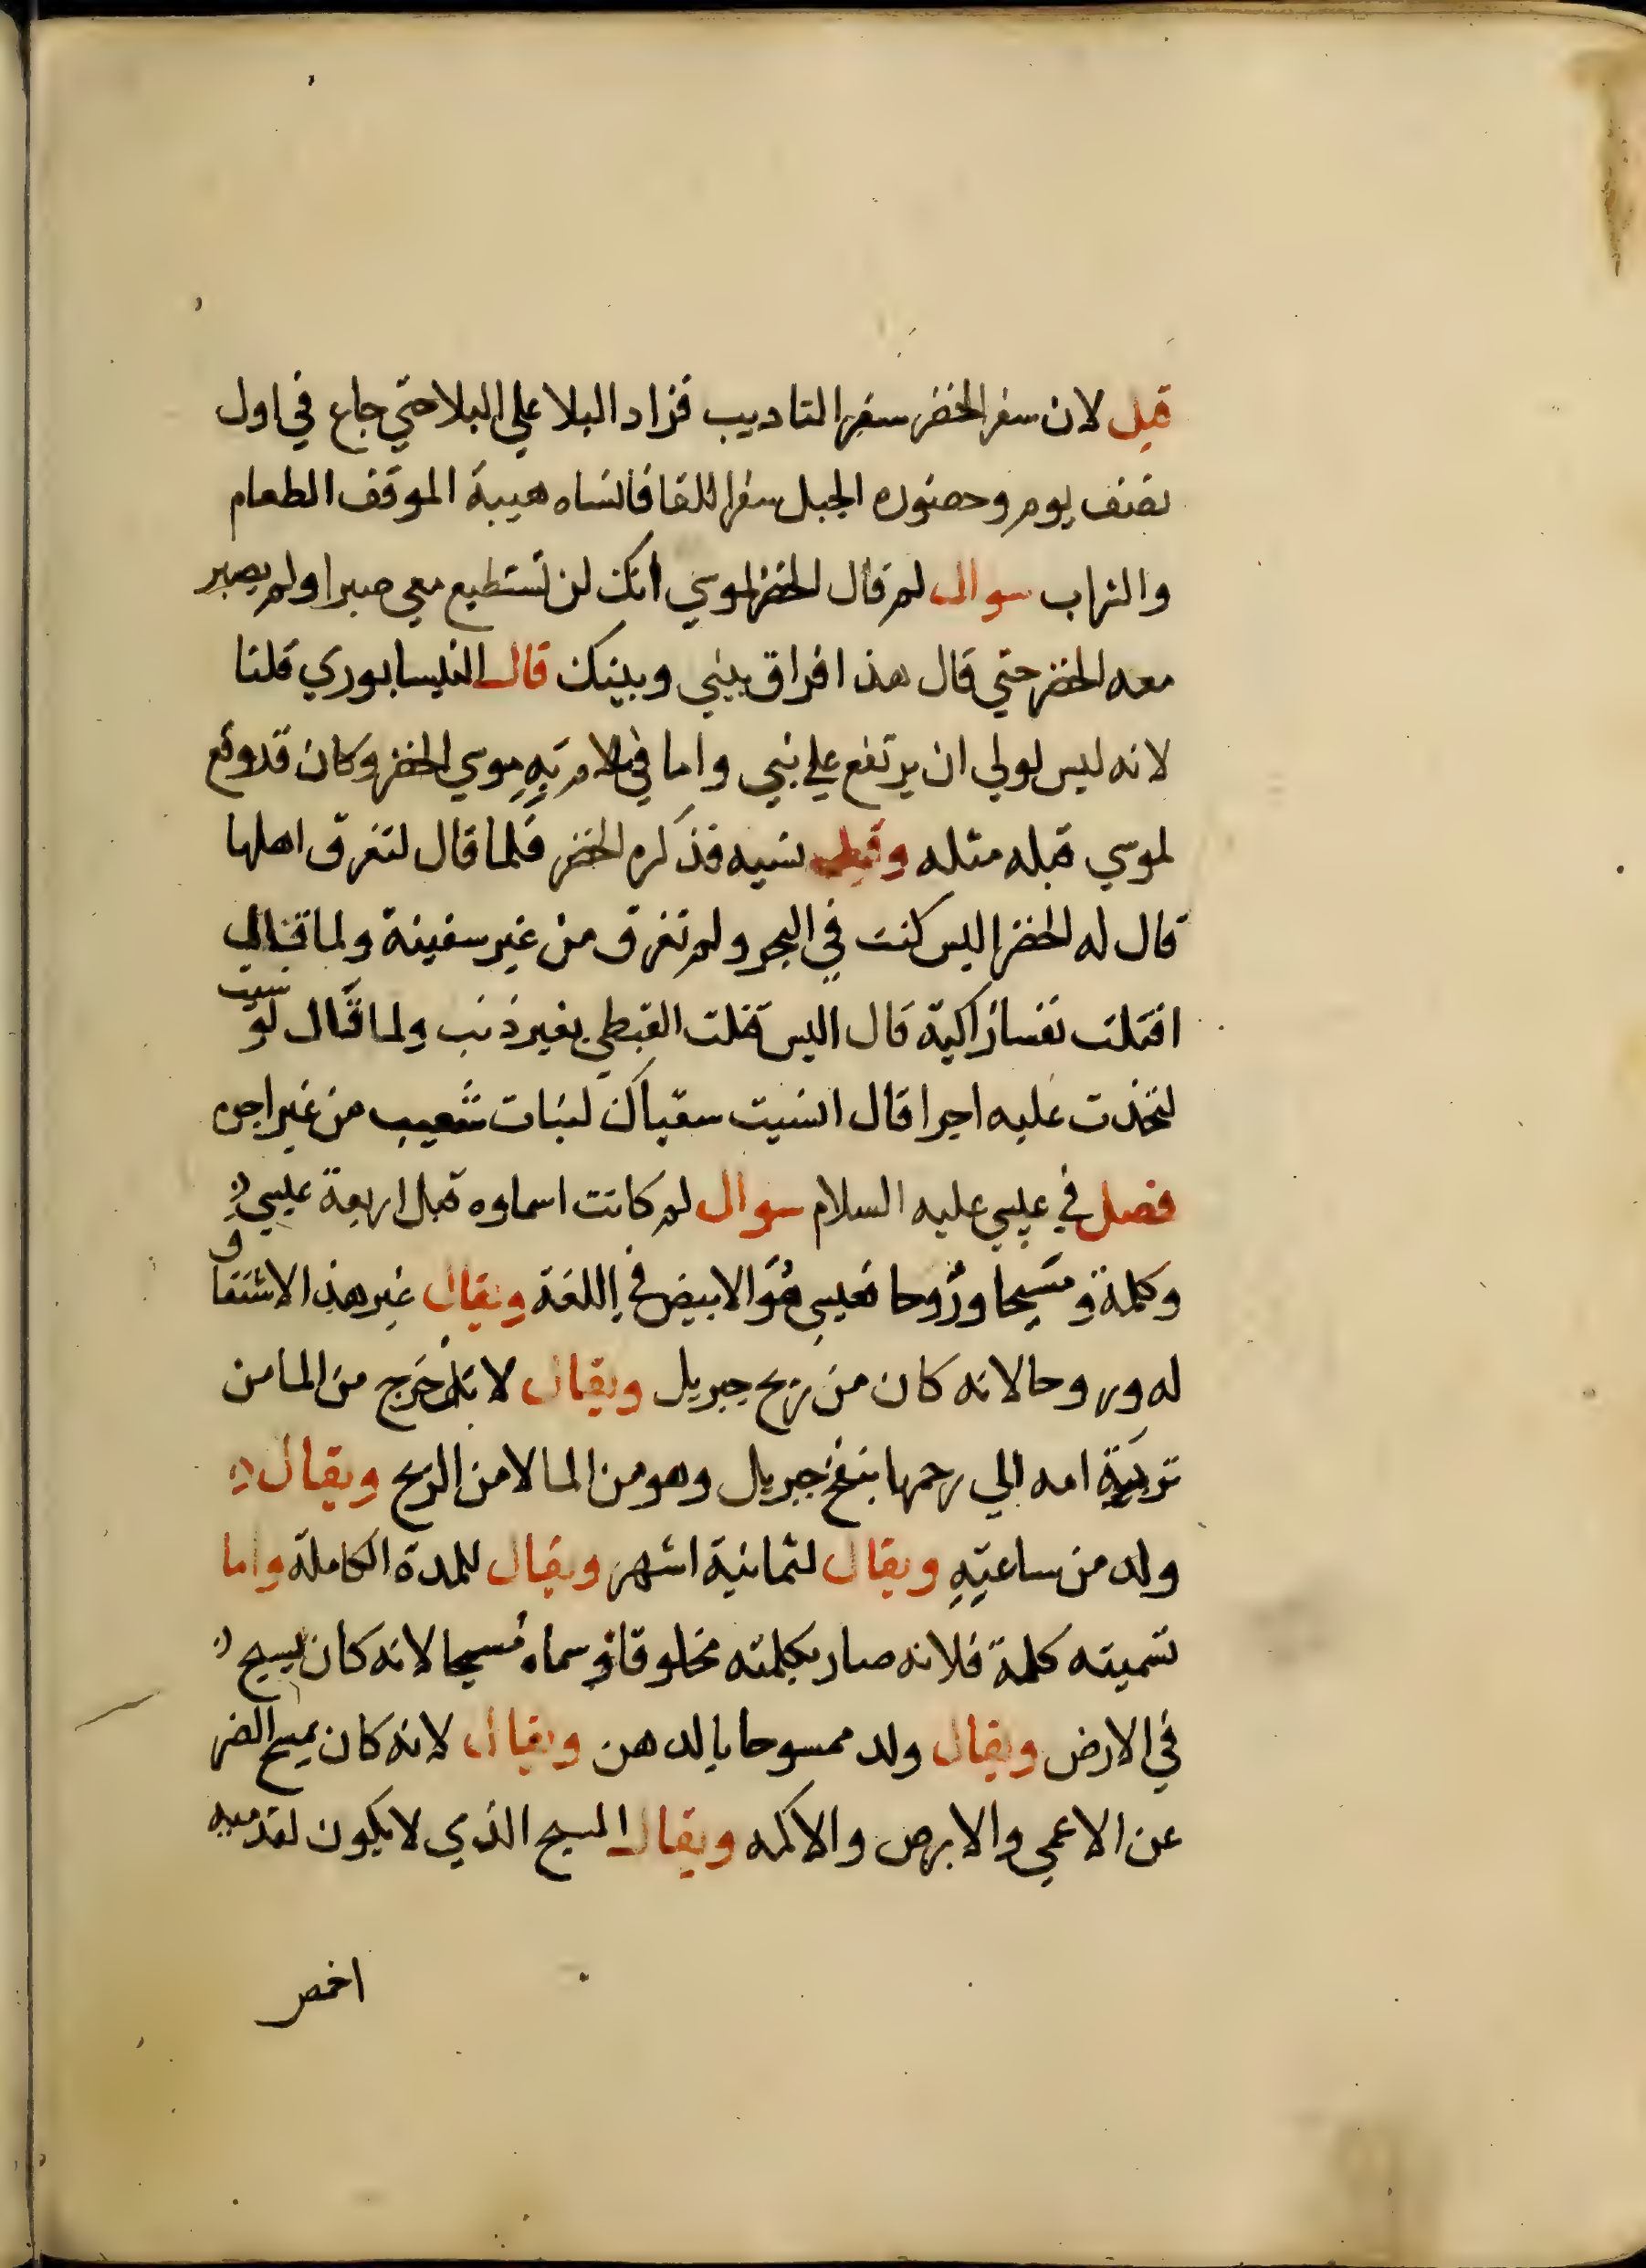 قيل لان سفر الخضر سفر التاديب فزاد البلا على البلا حتي جاع في اول
نصف يوم وحضوره الجبل سفر اللقا فانساه هيبة الموقف الطعام
والشراب سوال لم قال الخضر لموسي انك لن تستطيع معي صبرا ولم يصبر
معه الخضر حتي قال هذا فراق بيني وبينك قال النيسابوري قلنا
لانه ليس لولي ان يرتفع علي نبي واما موسي الخضر وكان قد وقع
لموسي قبله مثله وقيل نسيه فذكره الخضر فلما قال لتغرق اهلها
قال له الخضر اليس كنت في البحر ولم تغرق من غير سفينة ولما قال
اقتلت نفسا زاكية قال اليس قتلت القبطي بغير ذنب ولما قال لو شيت
لتخذت عليه اجرا قال انسيت سقياك لبنات شعيب من غير اجره
فصل في عيسي عليه السلام سوال لم كانت اسماوه قبل اربعة عيسي
وكلمة ومسيحا وروحا فعيسي هو الابيض في اللغة ويقال غير هذا لاشتقاق
له وروحا لانه كان من ريح جبريل ويقال لانه خرج من الما من
تربية امه الي رحمها بنفخ جبريل وهو من الما لا من الريح ويقال
ولد من ساعتِهِ ويقال لثمانية اشهر ويقال للمدة الكاملة واما
تسميته كلمة فلانه صار بكلمته مخلوقا وسماه مسيحا لانه كان يسيح
في الارض ويقال ولد ممسوحا بالدهن ويقال لانه كان يمسح الضر
عن الاعمي والابرص والاكمه ويقال المسيح الذي لا يكون لقدميه
اخمص